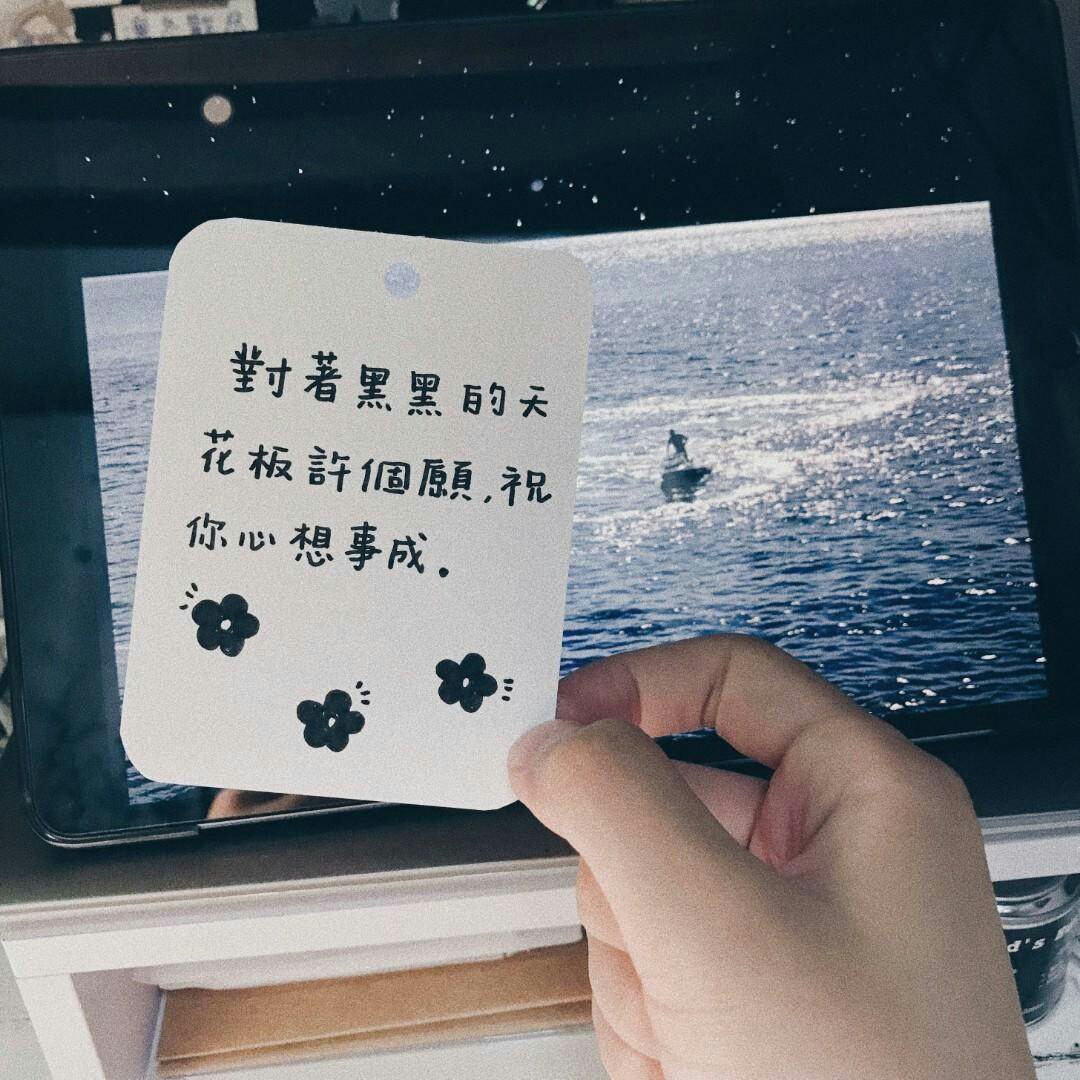 對著黑黑的天
花板許個願,祝
你心想事成.
d's